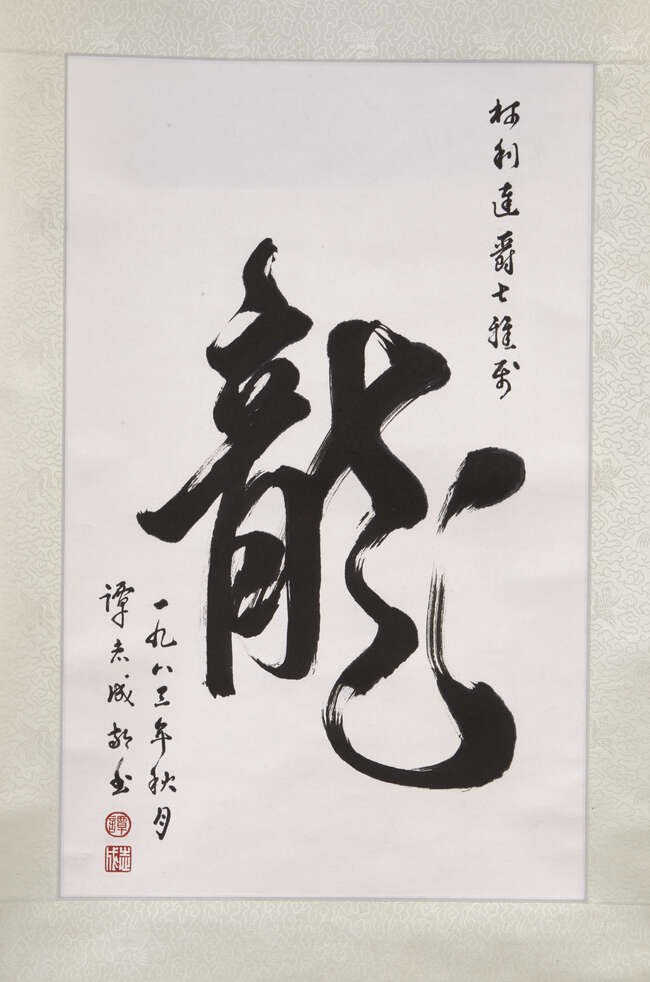 柯利達爵士雅
龍
一九八三年秋月
譚志成敬书
譚
志成